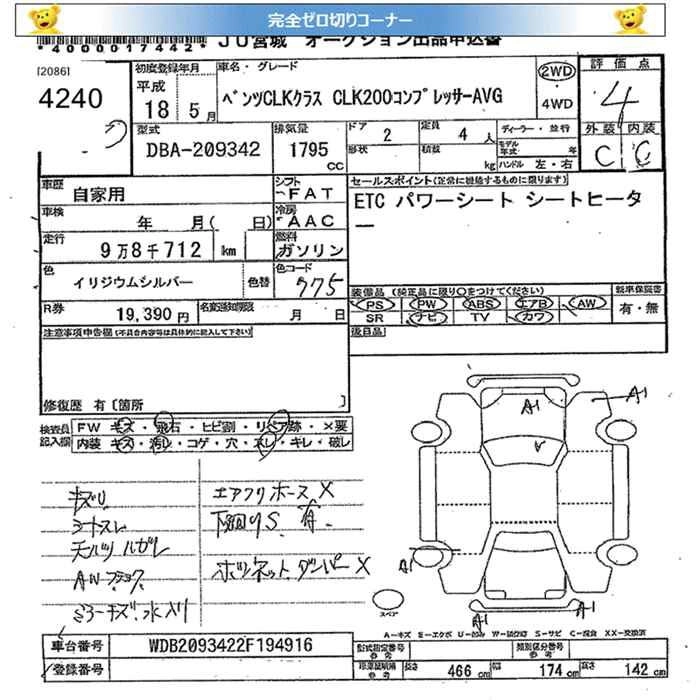 完全ゼロ切りコーナー
*4000017442* JU宮城 オークション出品申込書
[2086]
4240
初度登録年月
平成
18 5月
車名・グレード
ベンツCLKクラス CLK200コンプレッサーAVG
2WD
4WD
評価点
4
外装 内装
C C
型式
DBA-209342
排気量
1795 CC
ドア 2
形状
定員 4 人
積載 kg
ディーラー・並行
モデル年式 年
ハンドル 左・右
車歴
自家用
シフト
FAT
車検
年 月( 日)
冷房
AAC
走行
9万8千712 km
燃料
ガソリン
色
イリジウムシルバー
色替
色コード
775
R券
19,390 円
名変通知期限
月 日
セールスポイント(正常に機能するものに限ります)
ETC パワーシート シートヒータ
ー
装備品(純正品に限り○をつけてください)
PS PW ABS エアB AW
SR ナビ TV カワ
新車保証書
有・無
後日品
注意事項申告欄(不具合内容等は具体的に記入して下さい)
修復歴 有〔箇所 〕
検査員記入欄
FW キズ・飛石・ヒビ割・リペア跡・×要
内装 キズ・汚れ・コゲ・穴・スレ・キレ・破レ
キズU
シートスレ
天バリ ハガレ
ミラーキズ、水入り
エアクリホース X
下回りS.
ボンネットダンパー X
A1
A1
A1
A1
A1
スペア
A-キズ E-エクボ U-凹み W-補修跡 S-サビ C-腐食 XX-交換済
車台番号
WDB2093422F194916
登録番号
型式指定番号
参考
類別区分番号
参考
長さ 466 cm
幅 174 cm
高さ 142 cm